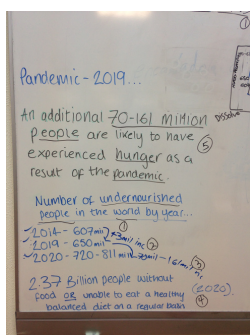 Pandemic - 2019...
An additional 70-161 million
people are likely to have
experienced hunger as a
result of the pandemic. (5)
Number of undernourished
people in the world by year...
(1)
2014 - 607mil
2019 - 650mil +43mil inc (2)
2020 - 720-811 mil - 161mil (3)
2.37 Billion people without (2020).
food OR unable to eat a healthy (4)
balanced diet on a regular basis
Dissolve